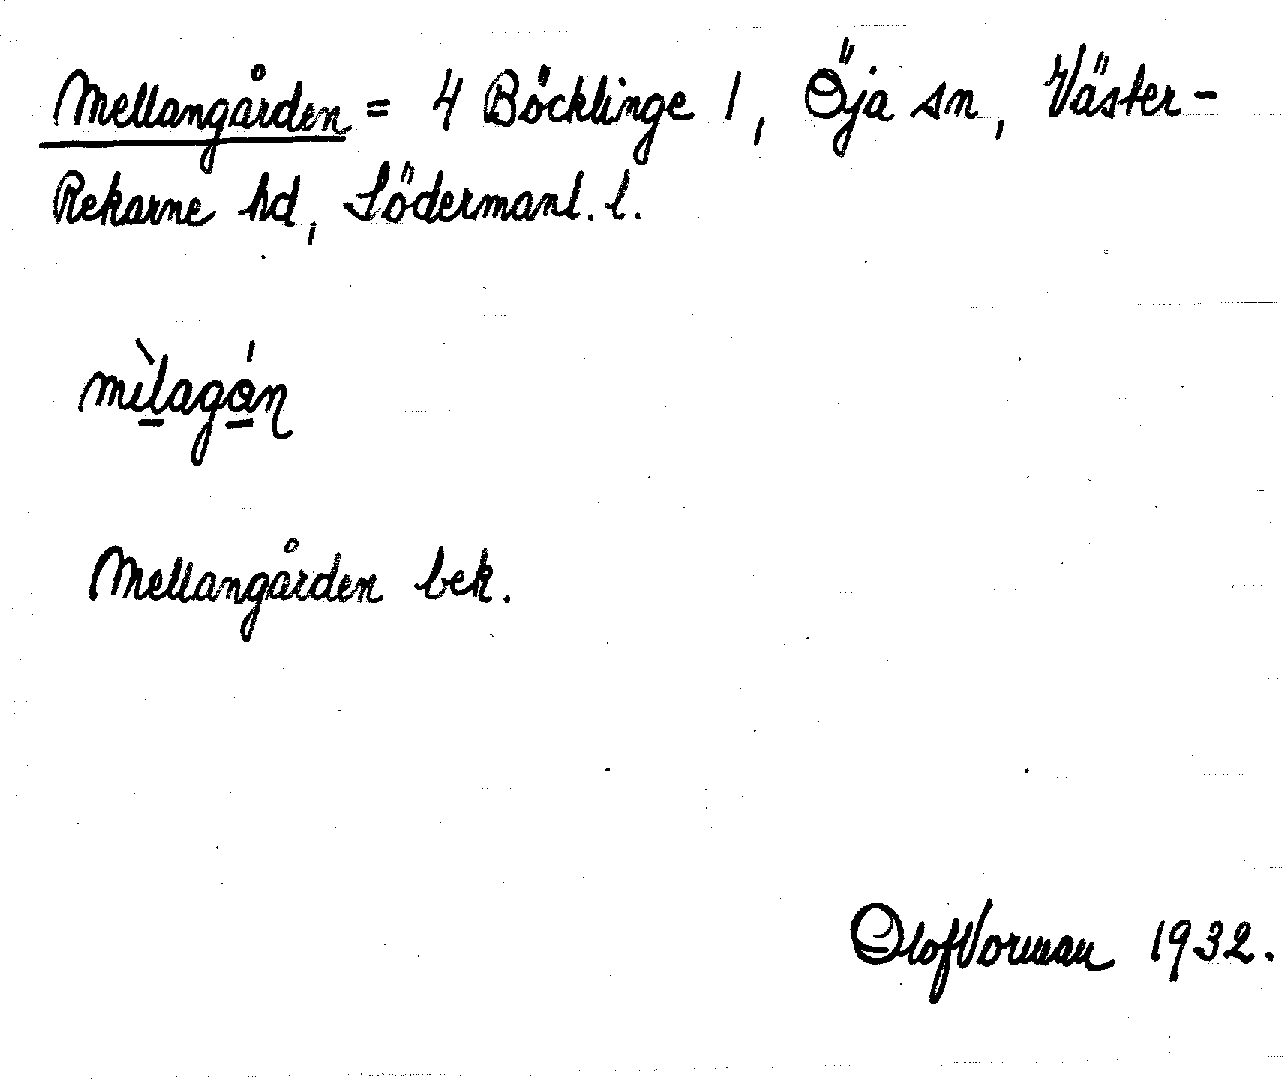 Mellangården = 4 Böcklinge 1, Öja sn, Väster-
Rekarne hd, Södermanl. l.
mìlagán
Mellangården bek.
Olof Vorman 1932.